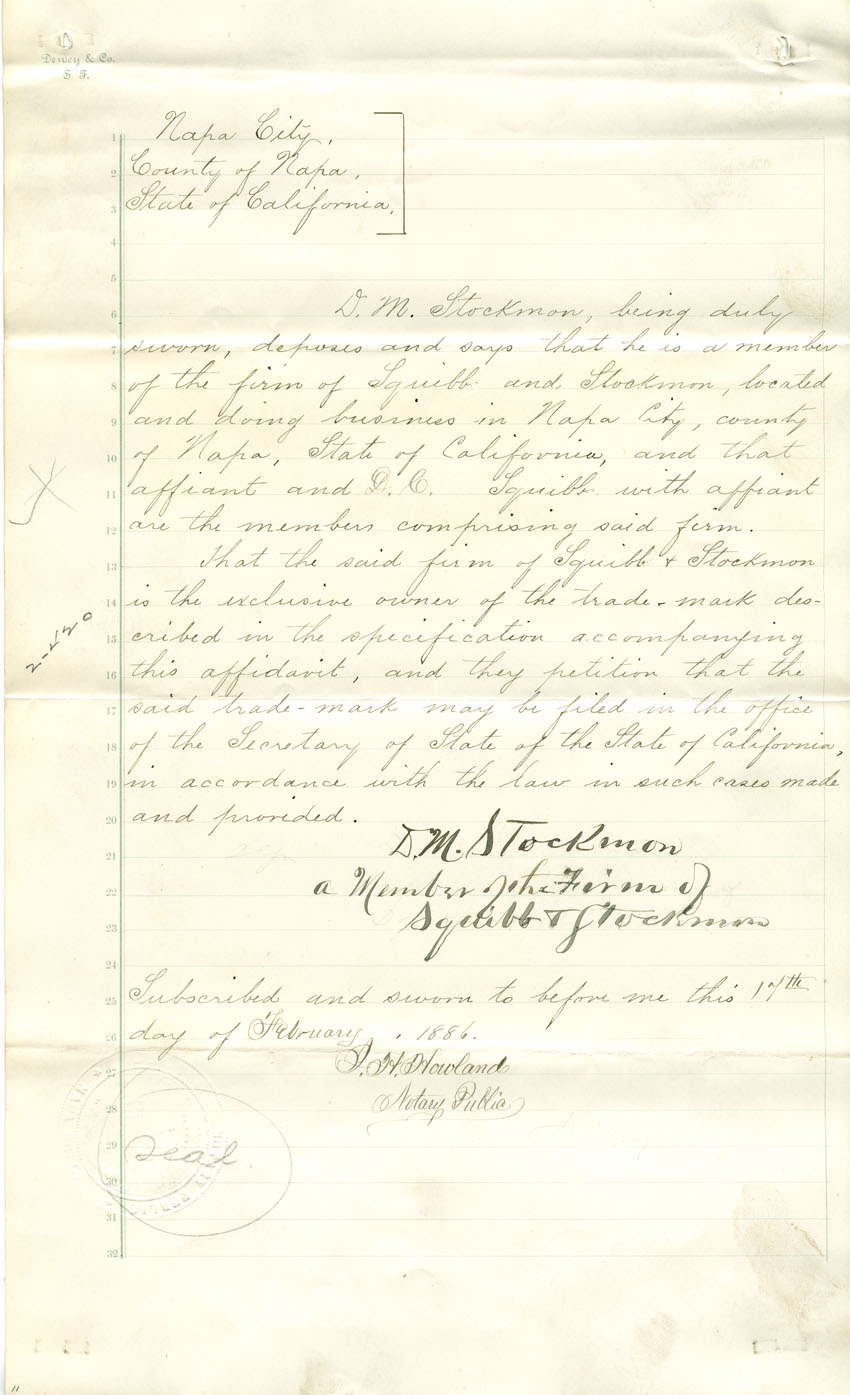 Dewey & Co.
S. F.
1 Napa City,
2 County of Napa,
3 State of California,
4
5
6 D. M. Stockmon, being duly
7 sworn, deposes and says that he is a member
8 of the firm of Squibb and Stockmon, located
9 and doing business in Napa City, county
10 of Napa, State of California, and that
11 affiant and D. C. Squibb with affiant
12 are the members comprising said firm.
13 That the said firm of Squibb & Stockmon
14 is the exclusive owner of the trade-mark des-
15 cribed in the specification accompanying
16 this affidavit, and they petition that the
17 said trade-mark may be filed in the office
18 of the Secretary of State of the State of California,
19 in accordance with the law in such cases made
20 and provided.
21 D. M. Stockmon
22 a Member of the Firm of
23 Squibb & Stockmon
24
25 Subscribed and sworn to before me this 17th
26 day of February, 1886.
27 Howland
28 Notary Public
29 seal
30
31
32